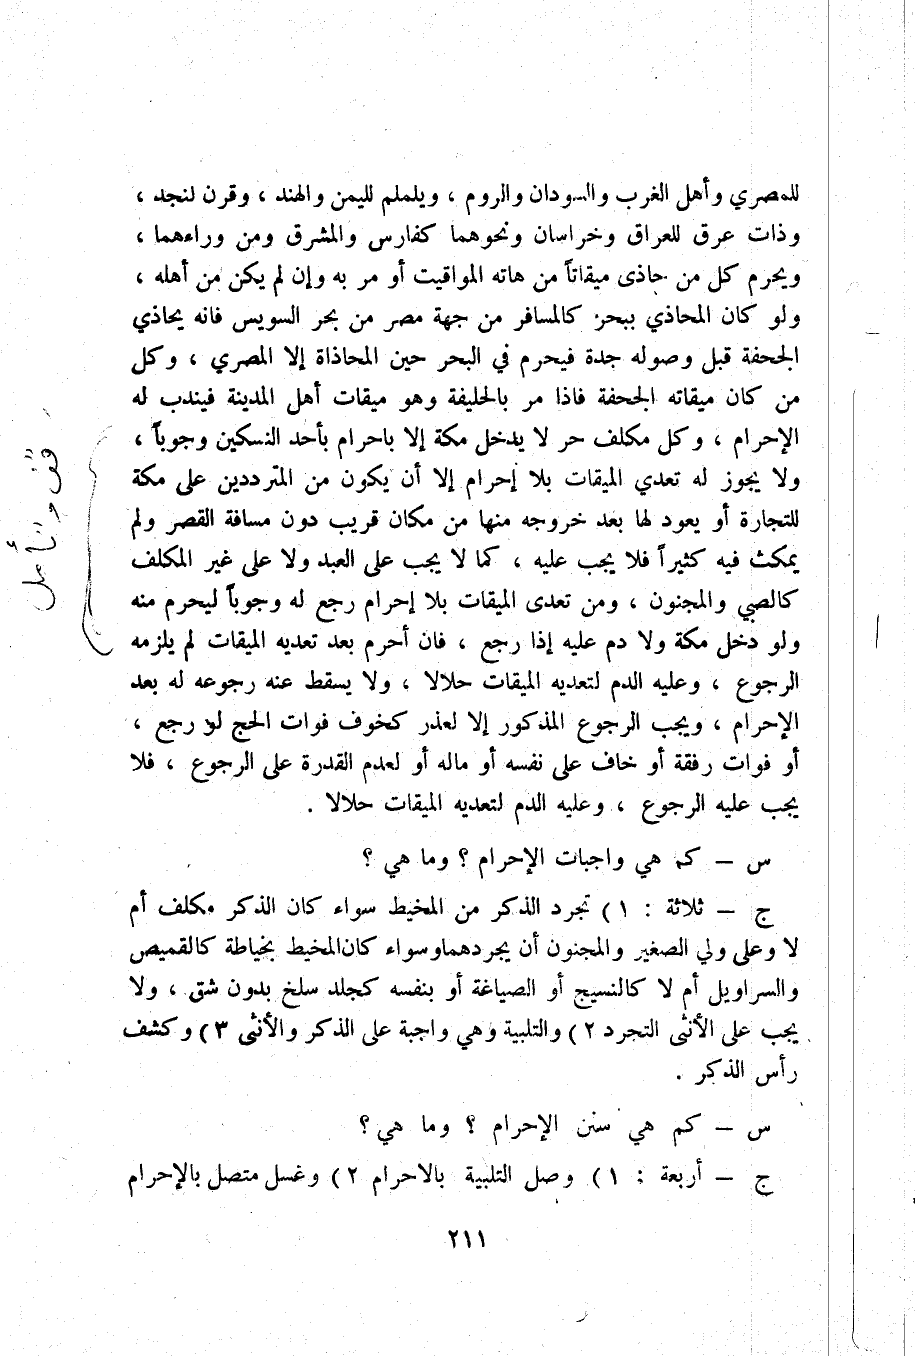 للمصري وأهل الغرب والسودان والروم ، ويلملم لليمن والهند ، وقرن لنجد ،
وذات عرق للعراق وخراسان ونحوهما كفارس والمشرق ومن وراءهما ،
ويحرم كل من حاذى ميقاتاً من هاته المواقيت أو مر به وإن لم يكن من أهله ،
ولو كان المحاذي ببحر كالمسافر من جهة مصر من بحر السويس فانه يحاذي
الجحفة قبل وصوله جدة فيحرم في البحر حين المحاذاة إلا المصري ، وكل
من كان ميقاته الجحفة فاذا مر بالحليفة وهو ميقات أهل المدينة فيندب له
الإحرام ، وكل مكلف حر لا يدخل مكة إلا باحرام بأحد النسكين وجوباً ،
ولا يجوز له تعدي الميقات بلا إحرام إلا أن يكون من المترددين على مكة
للتجارة أو يعود لها بعد خروجه منها من مكان قريب دون مسافة القصر ولم
يمكث فيه كثيراً فلا يجب عليه ، كما لا يجب على العبد ولا على غير المكلف
كالصبي والمجنون ، ومن تعدى الميقات بلا إحرام رجع له وجوباً ليحرم منه
ولو دخل مكة ولا دم عليه إذا رجع ، فان أحرم بعد تعديه الميقات لم يلزمه
الرجوع ، وعليه الدم لتعديه الميقات حلالا ، ولا يسقط عنه رجوعه له بعد
الإحرام ، ويجب الرجوع المذكور إلا لعذر كخوف فوات الحج لو رجع ،
أو فوات رفقة أو خاف على نفسه أو ماله أو لعدم القدرة على الرجوع ، فلا
يجب عليه الرجوع ، وعليه الدم لتعديه الميقات حلالا .
س – كم هي واجبات الإحرام ؟ وما هي ؟
ج – ثلاثة : ١) تجرد الذكر من المخيط سواء كان الذكر مكلف أم
لا وعلى ولي الصغير والمجنون أن يجردهما وسواء كان المخيط بخياطة كالقميص
والسراويل أم لا كالنسيج أو الصياغة أو بنفسه كجلد سلخ بدون شق ، ولا
يجب على الأنثى التجرد ٢) والتلبية وهي واجبة على الذكر والأنثى ٣) وكشف
رأس الذكر .
س – كم هي سنن الإحرام ؟ وما هي ؟
ج – أربعة : ١) وصل التلبية بالاحرام ٢) وغسل متصل بالإحرام
٢١١
قف وتأمل